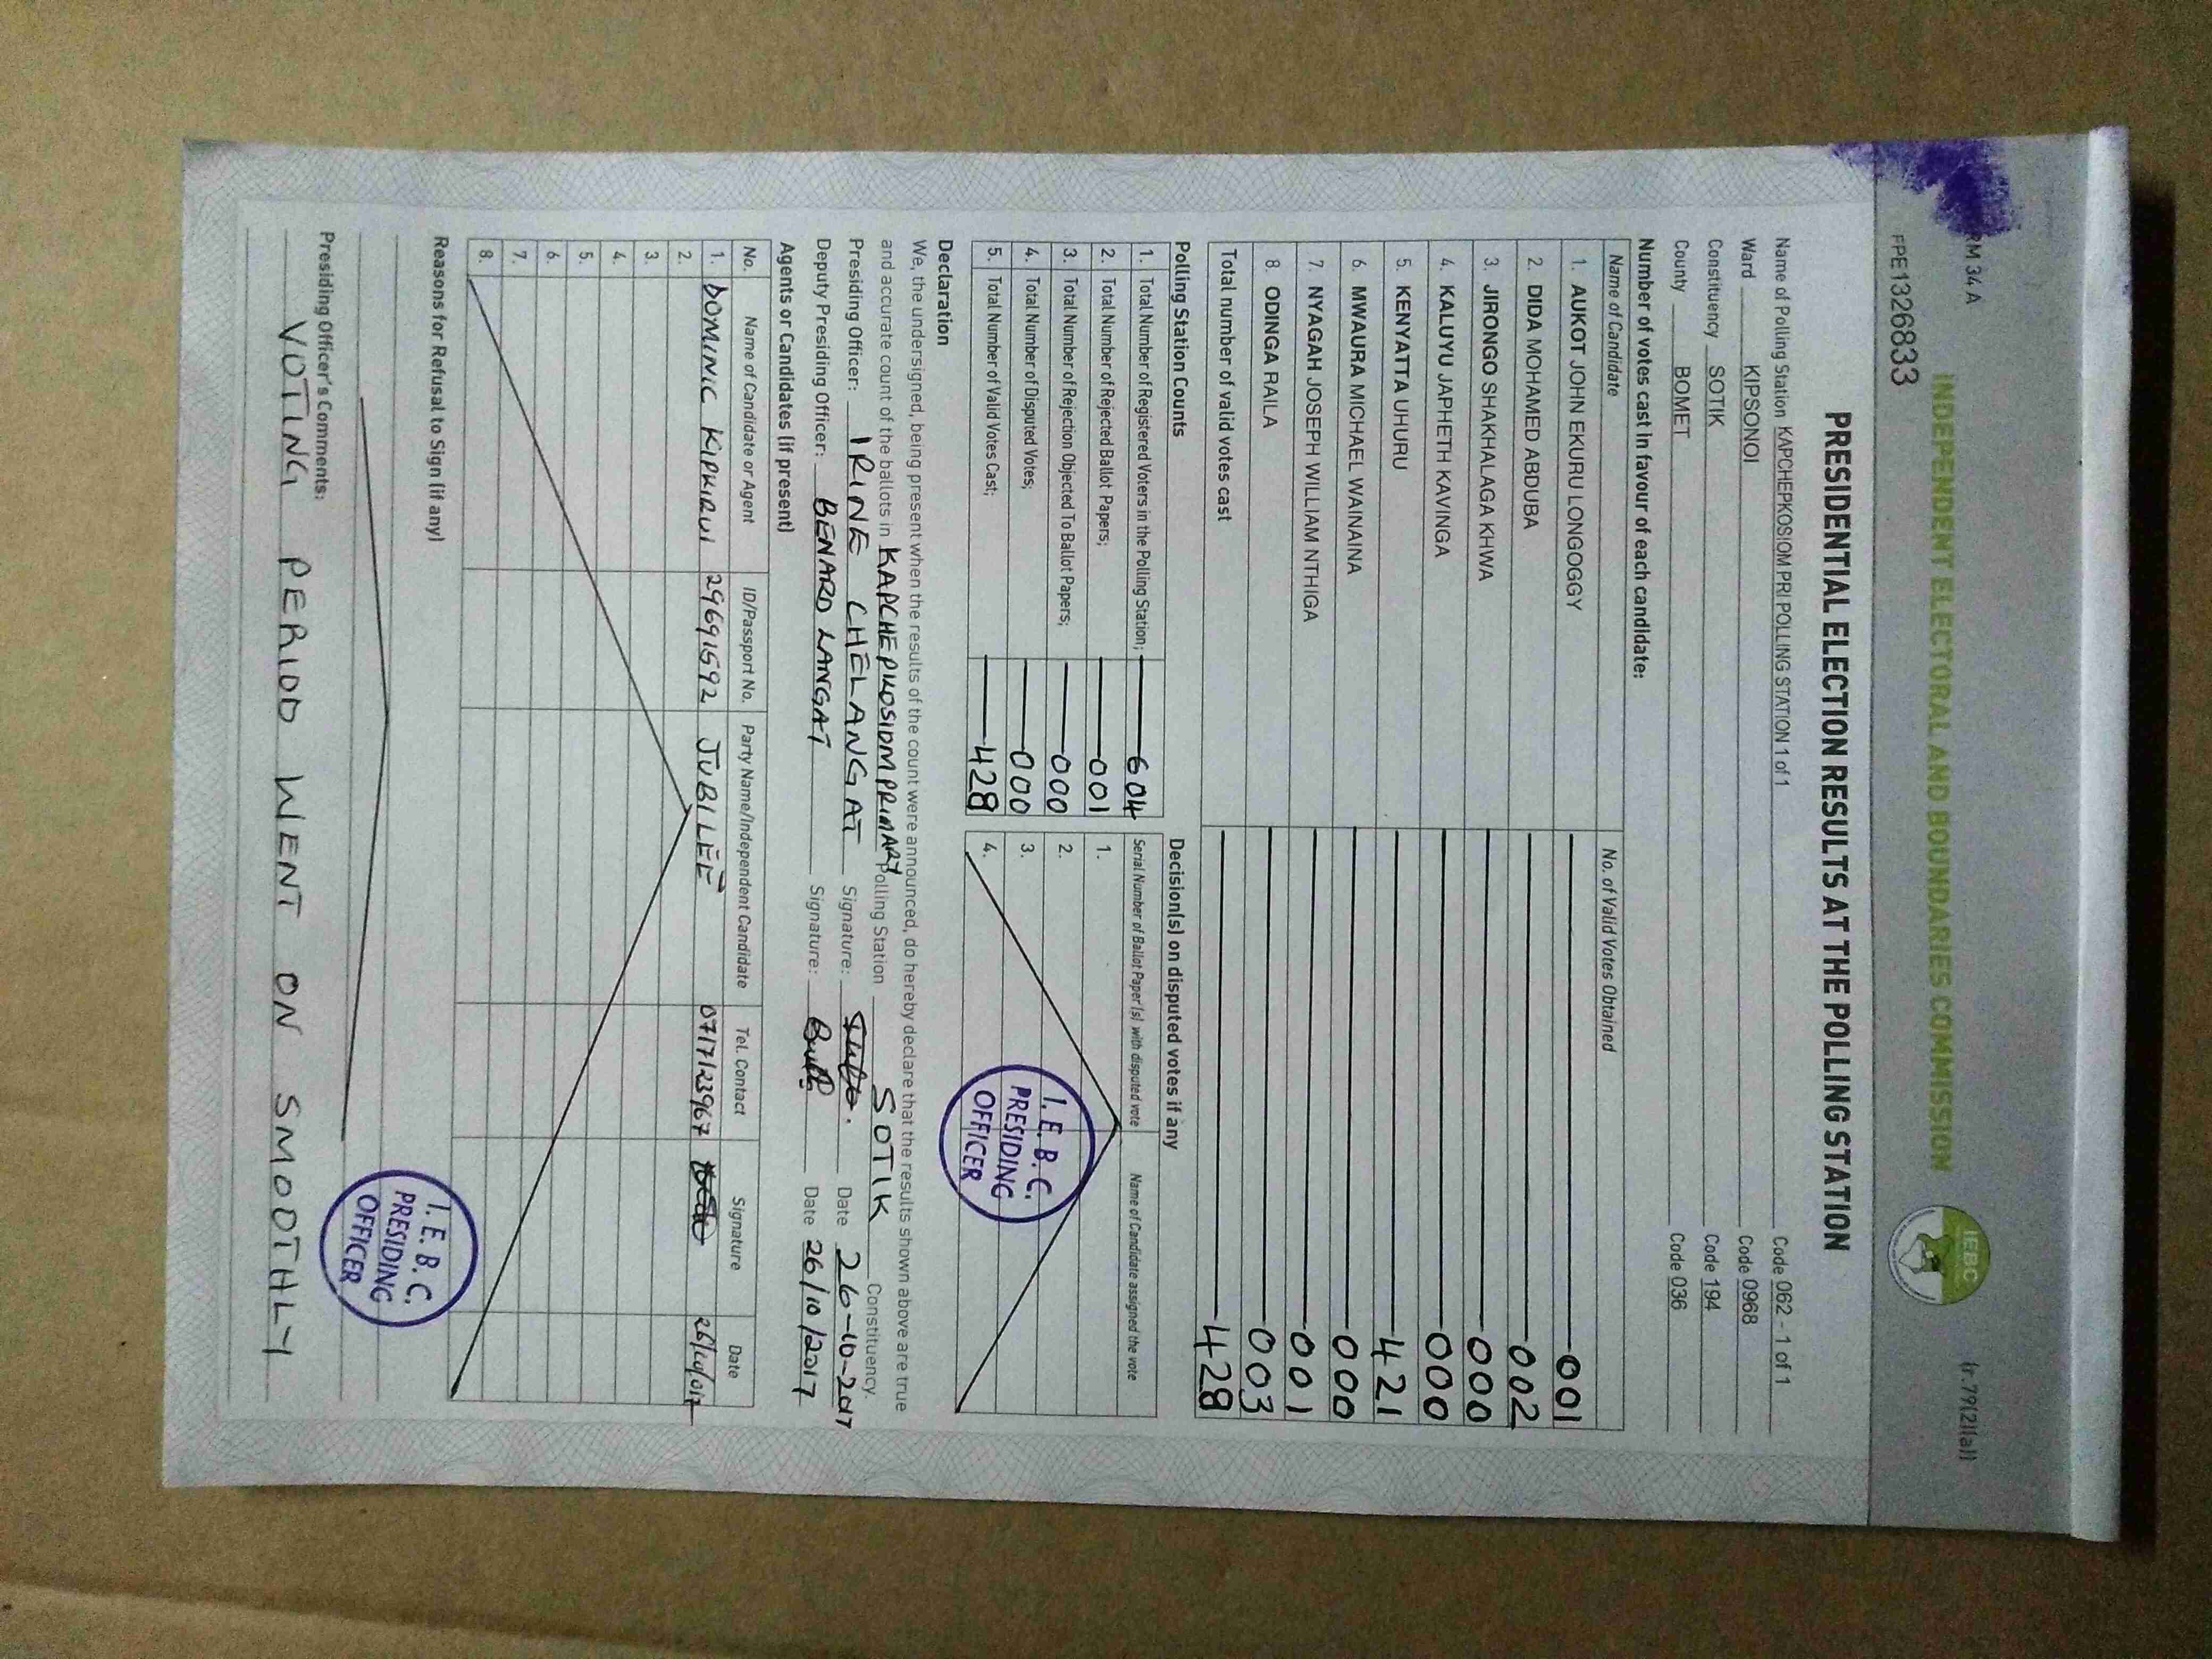 RM 34 A
(r.79(2)(a))
INDEPENDENT ELECTORAL AND BOUNDARIES COMMISSION
IEBC
FPE1326833
PRESIDENTIAL ELECTION RESULTS AT THE POLLING STATION
Name of Polling Station KAPCHEPKOSIOM PRI POLLING STATION 1 of 1 Code 062 - 1 of 1
Ward KIPSONOI Code 0968
Constituency SOTIK Code 194
County BOMET Code 036
Number of votes cast in favour of each candidate:
Name of Candidate No. of Valid Votes Obtained
1. AUKOT JOHN EKURU LONGOGGY 001
2. DIDA MOHAMED ABDUBA 002
3. JIRONGO SHAKHALAGA KHWA 000
4. KALUYU JAPHETH KAVINGA 000
5. KENYATTA UHURU 421
6. MWAURA MICHAEL WAINAINA 000
7. NYAGAH JOSEPH WILLIAM NTHIGA 001
8. ODINGA RAILA 003
Total number of valid votes cast 428
Polling Station Counts
1. Total Number of Registered Voters in the Polling Station; 604
2. Total Number of Rejected Ballot Papers; 001
3. Total Number of Rejection Objected To Ballot Papers; 000
4. Total Number of Disputed Votes; 000
5. Total Number of Valid Votes Cast; 428
Decision(s) on disputed votes if any
Serial Number of Ballot Paper(s) with disputed vote Name of Candidate assigned the vote
1.
2.
3.
4.
I.E.B.C.
PRESIDING
OFFICER
Declaration
We, the undersigned, being present when the results of the count were announced, do hereby declare that the results shown above are true
and accurate count of the ballots in KAPCHEPKOSIOM PRIMARY Polling Station SOTIK Constituency.
Presiding Officer: IRINE CHELANGAT Signature: Date 26-10-2017
Deputy Presiding Officer: BENARD LANGAT Signature: Date 26/10/2017
Agents or Candidates (if present)
No. Name of Candidate or Agent ID/Passport No. Party Name/Independent Candidate Tel. Contact Signature Date
1. DOMINIC KIPKIRUI 29691592 JUBILEE 0717123967 26/10/017
2.
3.
4.
5.
6.
7.
8.
Reasons for Refusal to Sign (if any)
I.E.B.C.
PRESIDING
OFFICER
Presiding Officer's Comments:
VOTING PERIOD WENT ON SMOOTHLY